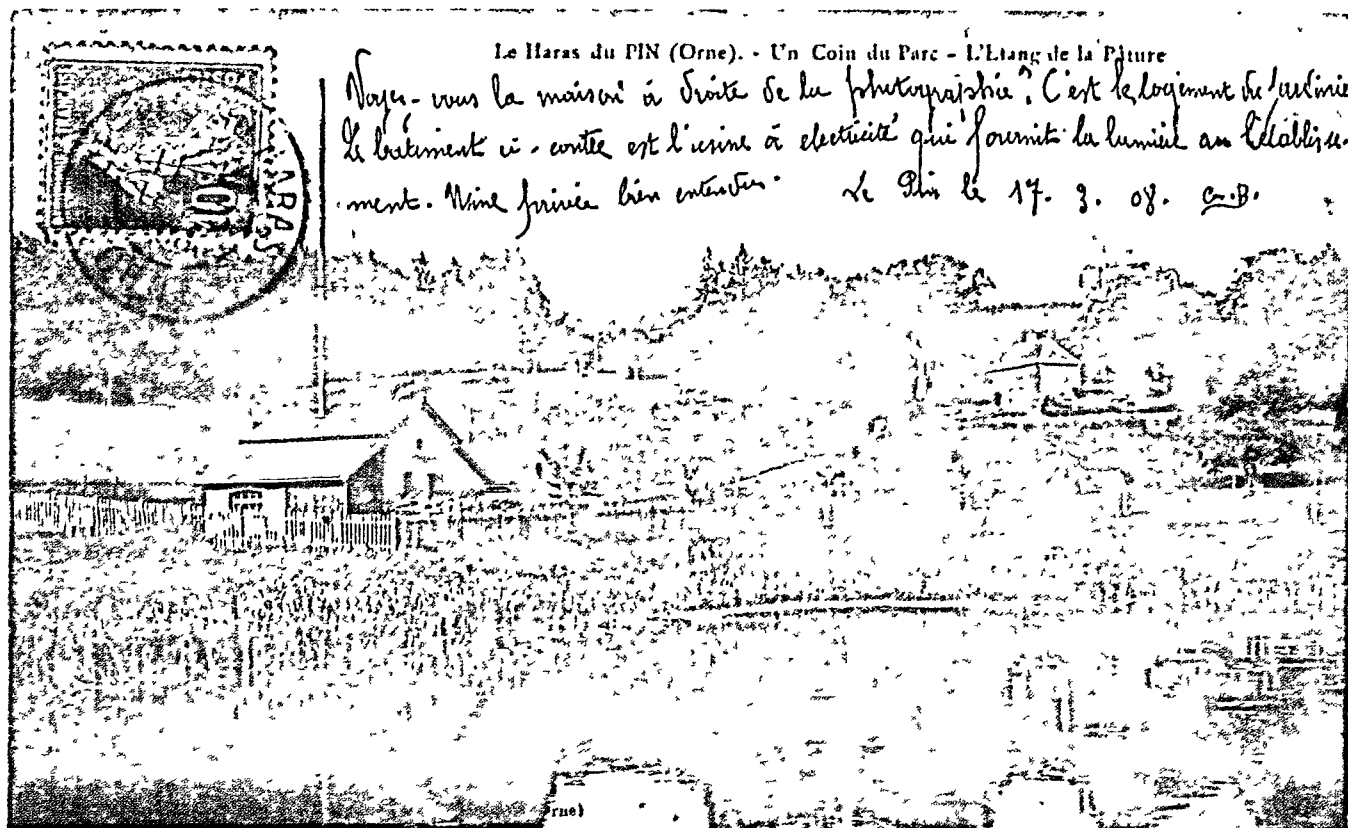 Le Haras du PIN (Orne). - Un Coin du Parc - L'Etang de la Pâture
Voyez-vous la maison à droite de la photographie? C'est le logement du jardinier
Le bâtiment ci-contre est l'usine à electricité qui fournit la lumière au l'établisse-
ment. Usine privée bien entendu. Le Pin le 17. 3. 08. G.B.
HARAS
rne)